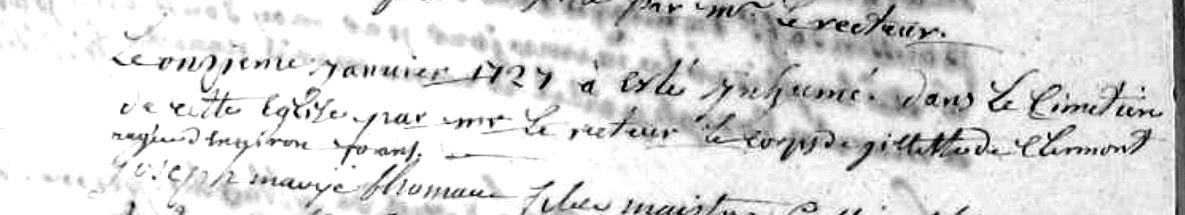 par mr. Le recteur.
Le onzieme janvier 1727 à esté ynhumé dans Le Cimetiere
de cette Eglise par mr Le recteur le corps de gillette de Clermont
aagée d'environ 70 ans.
joseph marye thomas files maistre